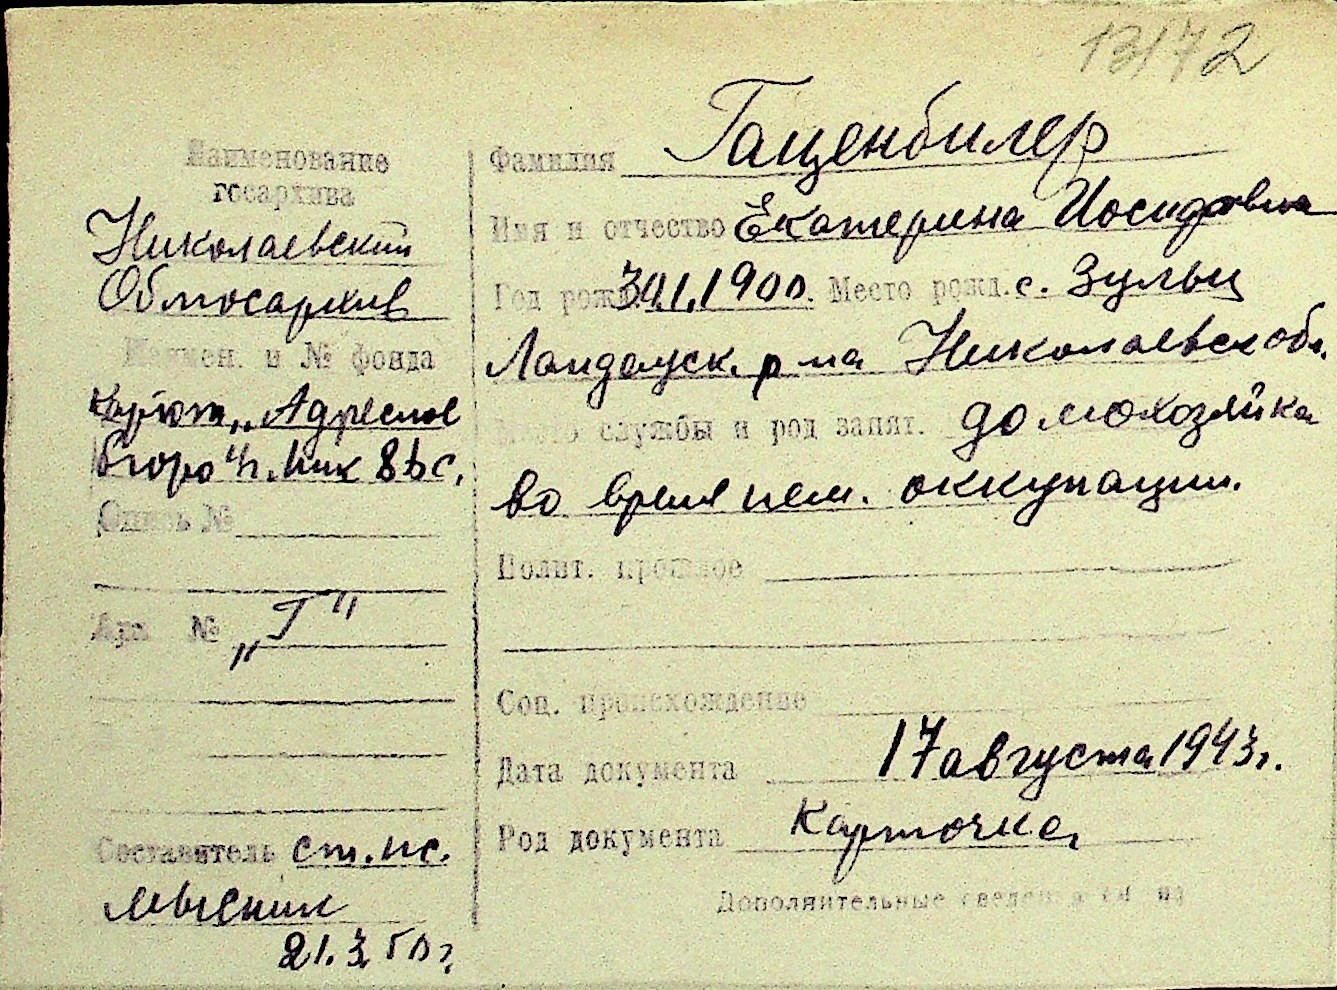 13172
Наименование
госархива
Николаевский
Облгосархив
Наимен. и № фонда
"Адресное
бюро"
Опись №
Арх №
„Г"
Составитель ст. нс.
21.3.50 г.
Фамилия Гаценбилер
Имя и отчество Екатерина Иосидовна
Год рожд. 30.1.1900. Место рожд. с. Зульц
Ландауск. р-на Николаевск обл.
Место службы и род занят. домохозяйка
во время нем. оккупации.
Полит. прошлое
Соц. происхождение
Дата документа 17 августа 1943 г.
Род документа Карточка
Дополнительные сведения